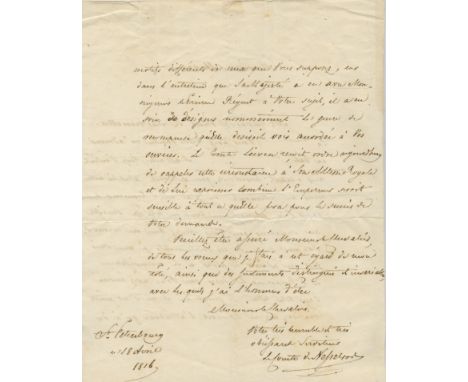 motifs différents de ceux que Vous supposez, car
dans l'entretien que Sa Majesté a eu avec Mon-
seigneur le Prince Régent à Votre sujet, il a eu
soin de désigner nommément le genre de
récompense qu'elle désirait voir accordée à Vos
services. Le Comte Lieven reçoit ordre aujourd'hui
de rappeler cette circonstance à Son Altesse Royale
et de lui exprimer combien l'Empereur serait
sensible à tout ce qu'elle ferait pour le succès de
Votre demande.
Veuillez être assuré Monsieur le Chevalier,
de tous les voeux que je fais à cet égard de mon
côté, ainsi que des sentiments distingués et invariables
avec lesquels j'ai l'honneur d'être
Monsieur le Chevalier
Votre très humble et très
obéissant Serviteur
le Comte de Nesselrode
St. Petersbourg
ce 18 Avril
1816